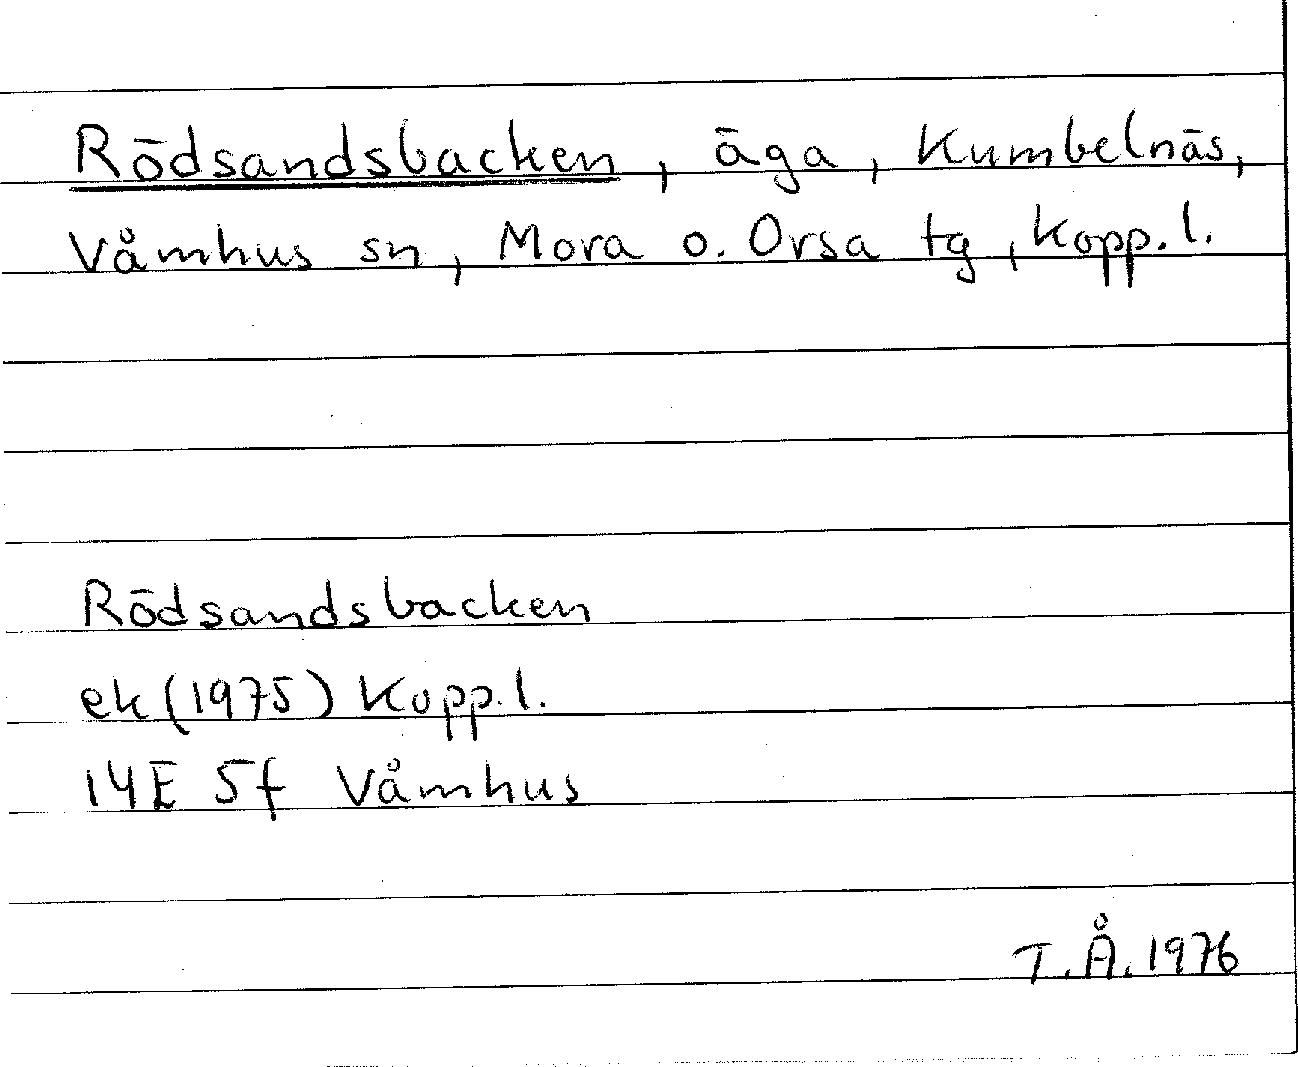 Rödsandsbacken, äga, Kumbelnäs,
Våmhus sn, Mora o. Orsa tg, Kopp.l.
Rödsandsbacken
ek (1975) Kopp.l.
14E 5f Våmhus
T.Å. 1976